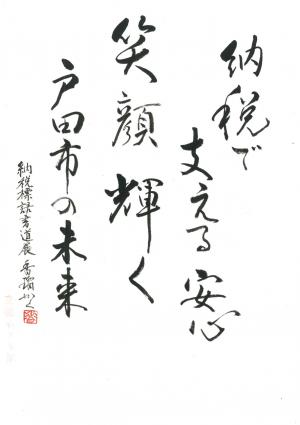 納税で
支える安心
笑顔輝く
戸田市の未来
納税標語書道展